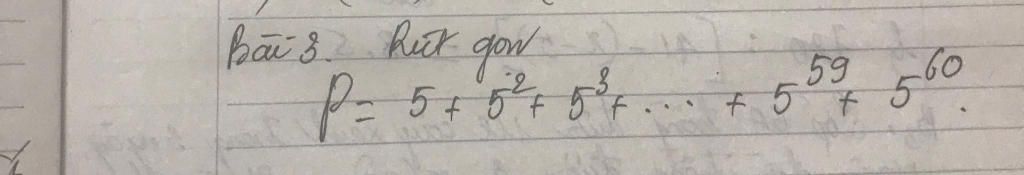 Bài 3. Rút gọn
P = 5 + 5² + 5³ + ... + 5⁵⁹ + 5⁶⁰.